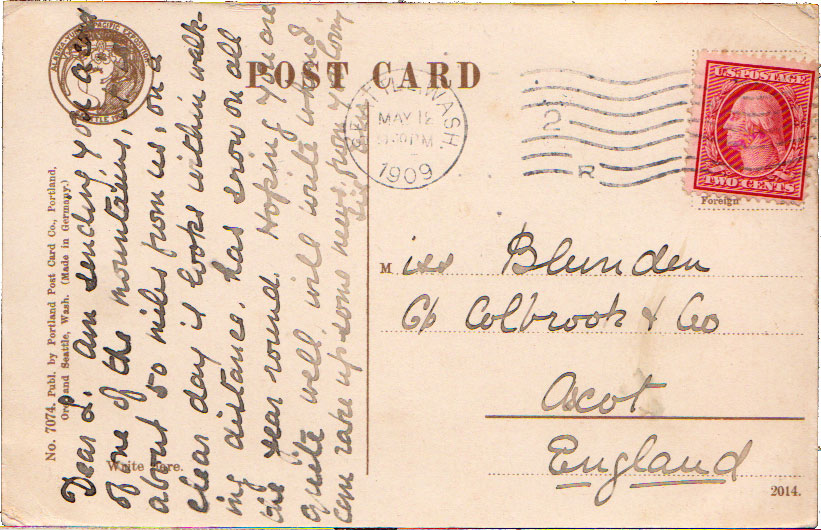 ALASKA-YUKON-PACIFIC EXPOSITION
POST CARD
SEATTLE, WASH.
MAY 12
PM
1909
2
R
U.S. POSTAGE
TWO CENTS
Foreign
No. 7074. Publ. by Portland Post Card Co., Portland,
Ore. and Seattle, Wash. (Made in Germany.)
Write here.
Dear L. Am sending you a view
of one of the mountains,
about 50 miles from us, on a
clear day it looks within walk-
ing distance, has snow on all
the year round. Hoping you are
quite well, will write when I
can rake up some news, from yr loving
Miss Blunden
C/o Colbrook & Co
Ascot
England
2014.